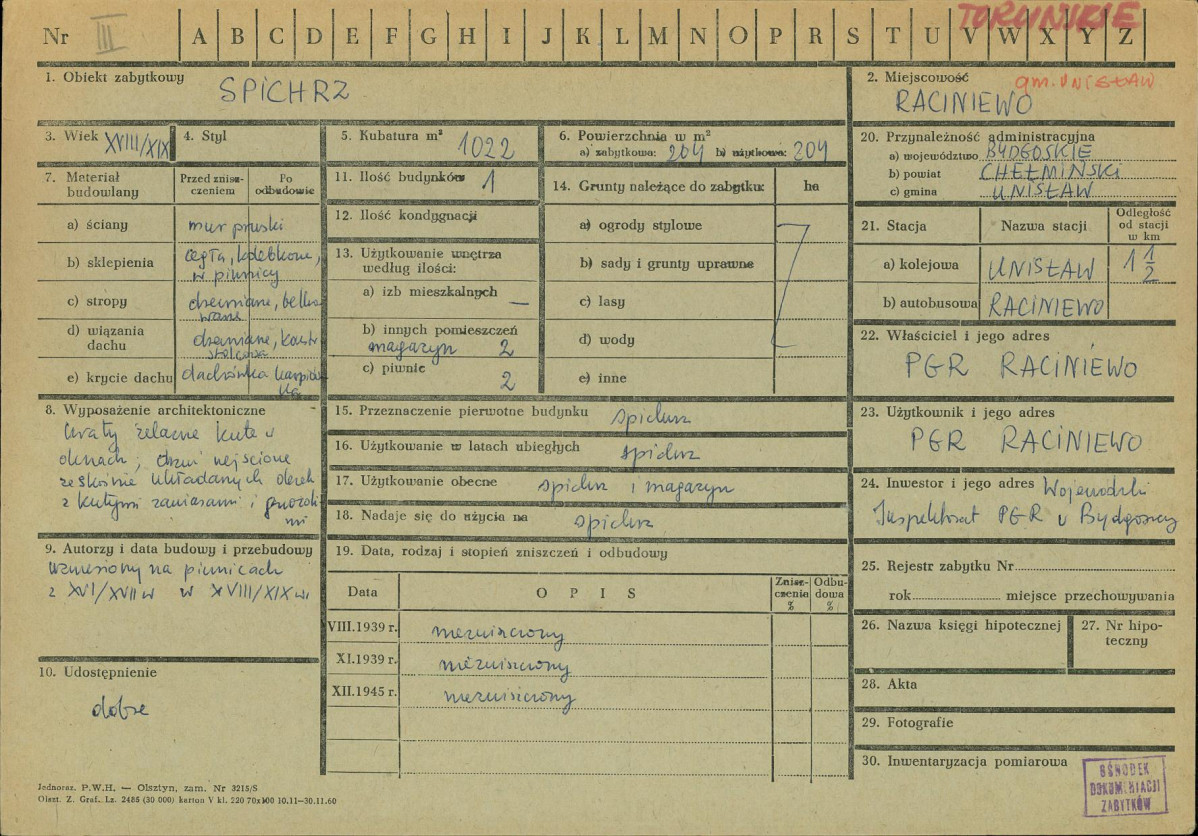 TORUŃSKIE
Nr III A B C D E F G H I J K L M N O P R S T U V W X Y Z
1. Obiekt zabytkowy
SPICHRZ
2. Miejscowość
gm. UNISŁAW
RACINIEWO
3. Wiek XVIII/XIX
4. Styl
5. Kubatura m³ 1022
6. Powierzchnia w m²
a) zabytkowa: 204 b) użytkowa: 204
7. Materiał budowlany
Przed zniszczeniem
Po odbudowie
a) ściany mur pruski
b) sklepienia cegła, kolebkowe,
w piwnicy
c) stropy drewniane, belko
wane
d) wiązania dachu drewniane, konstr
stolcowa
e) krycie dachu dachówka karpiów
ka
8. Wyposażenie architektoniczne
kraty żelazne kute w
oknach, drzwi wejściowe
ze skośnie układanych desek
z kutymi zawiasami i gwoździ
mi
9. Autorzy i data budowy i przebudowy
wzniesiony na piwnicach
z XVI/XVII w w XVIII/XIX w.
10. Udostępnienie
dobre
11. Ilość budynków 1
12. Ilość kondygnacji
13. Użytkowanie wnętrza
według ilości:
a) izb mieszkalnych —
b) innych pomieszczeń
magazyn 2
c) piwnic
2
14. Grunty należące do zabytku: ha
a) ogrody stylowe
b) sady i grunty uprawne
c) lasy
d) wody
e) inne
15. Przeznaczenie pierwotne budynku spichrz
16. Użytkowanie w latach ubiegłych spichrz
17. Użytkowanie obecne spichrz i magazyn
18. Nadaje się do użycia na spichrz
19. Data, rodzaj i stopień zniszczeń i odbudowy
Data
OPIS
Zniszczenia %
Odbudowa %
VIII.1939 r. niezniszczony
XI.1939 r. niezniszczony
XII.1945 r. niezniszczony
20. Przynależność administracyjna
a) województwo BYDGOSKIE
b) powiat CHEŁMIŃSKI
c) gmina UNISŁAW
21. Stacja
Nazwa stacji
Odległość
od stacji
w km
a) kolejowa UNISŁAW 1 1/2
b) autobusowa RACINIEWO
22. Właściciel i jego adres
PGR RACINIEWO
23. Użytkownik i jego adres
PGR RACINIEWO
24. Inwestor i jego adres Wojewódzki
Inspektorat PGR w Bydgoszczy
25. Rejestr zabytku Nr
rok miejsce przechowywania
26. Nazwa księgi hipotecznej
27. Nr hipo-
teczny
28. Akta
29. Fotografie
30. Inwentaryzacja pomiarowa
OŚRODEK
DOKUMENTACJI
ZABYTKÓW
Jednoraz. P.W.H. — Olsztyn, zam. Nr 3215/S
Olszt. Z. Graf. Lz. 2485 (30 000) karton V kl. 220 70x100 10.11—30.11.60